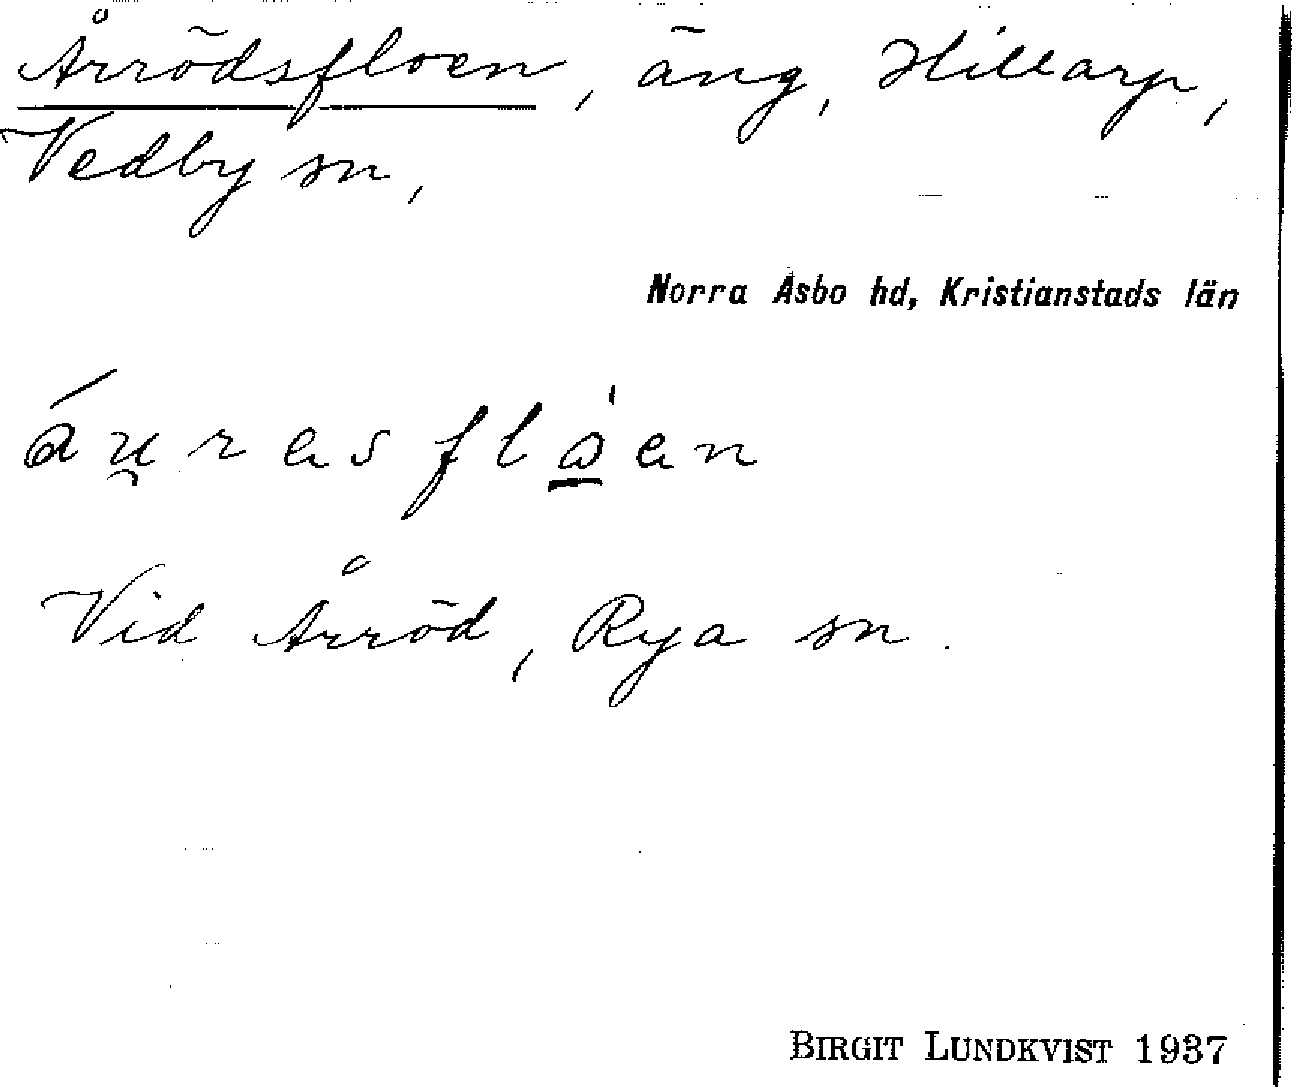 Årrödsfloen, äng, Hillarp,
Vedby sn,
Norra Åsbo hd, Kristianstads län
Vid Årröd, Rya sn.
BIRGIT LUNDKVIST 1937